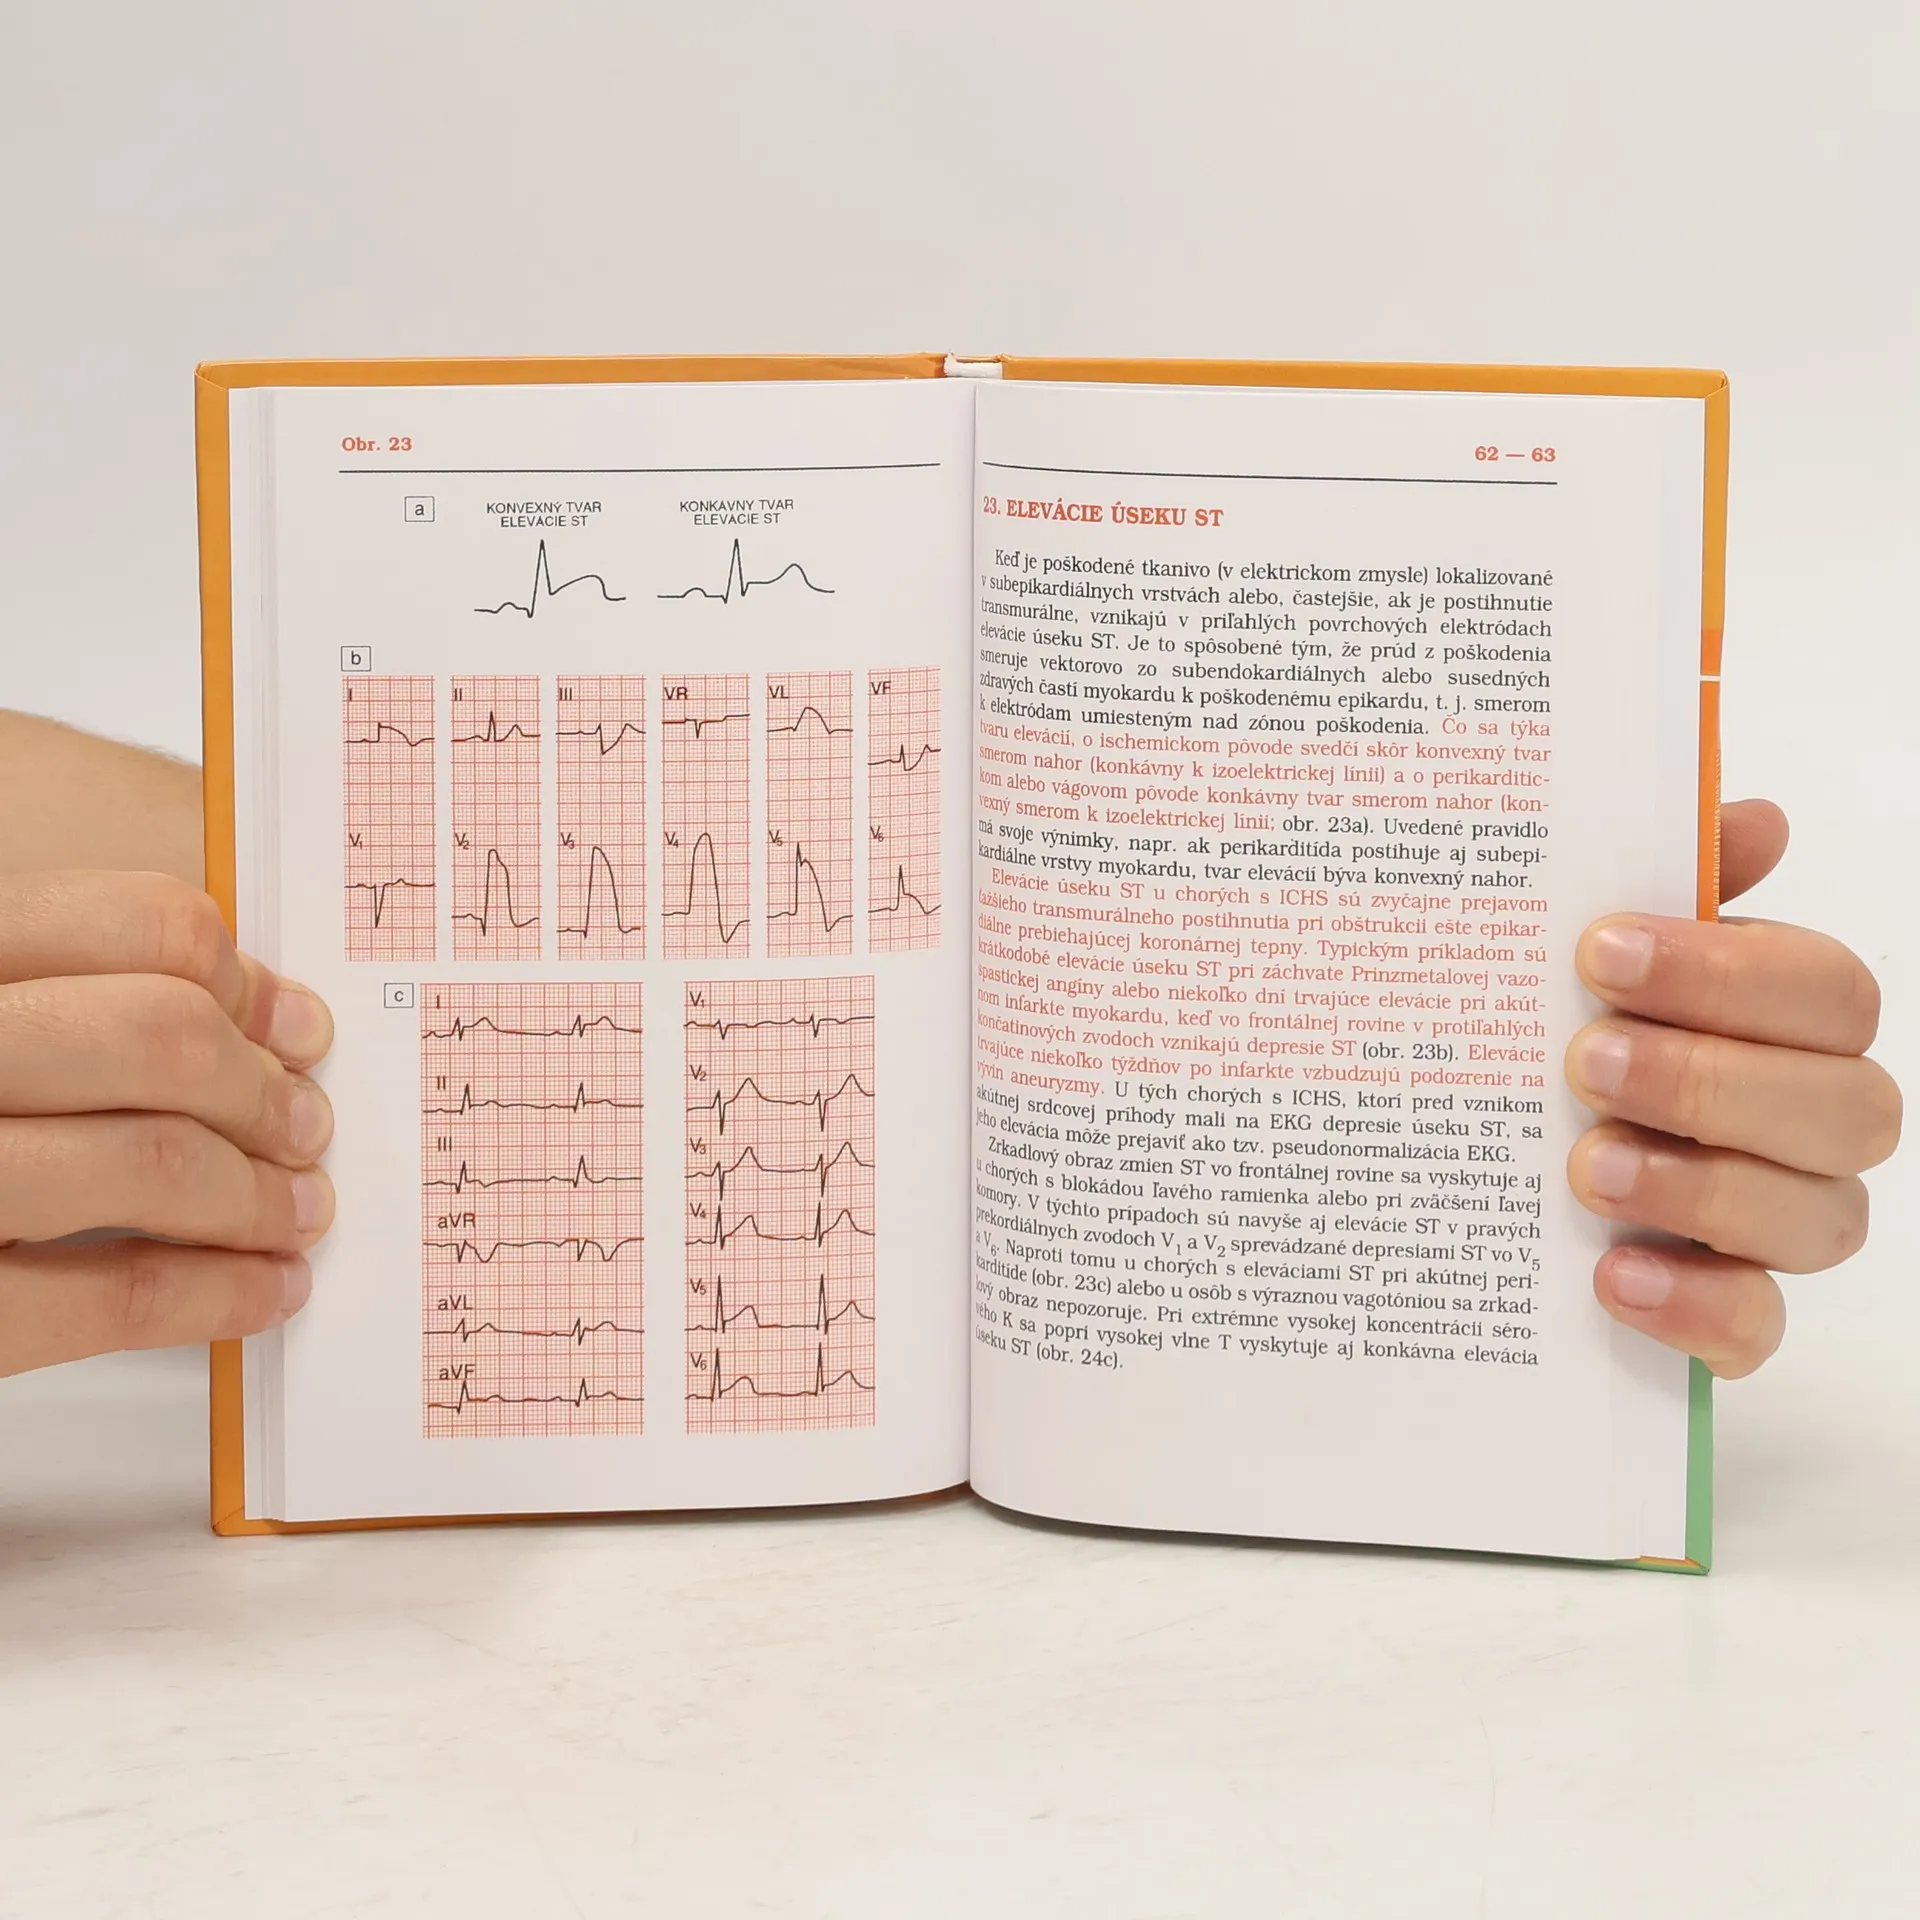 Obr. 23
a
KONVEXNÝ TVAR
ELEVÁCIE ST
KONKÁVNY TVAR
ELEVÁCIE ST
b
I
II
III
VR
VL
VF
V₁
V₂
V₃
V₄
V₅
V₆
c
I
II
III
aVR
aVL
aVF
V₁
V₂
V₃
V₄
V₅
V₆
62 — 63
23. ELEVÁCIE ÚSEKU ST
Keď je poškodené tkanivo (v elektrickom zmysle) lokalizované
v subepikardiálnych vrstvách alebo, častejšie, ak je postihnutie
transmurálne, vznikajú v priľahlých povrchových elektródach
elevácie úseku ST. Je to spôsobené tým, že prúd z poškodenia
smeruje vektorovo zo subendokardiálnych alebo susedných
zdravých častí myokardu k poškodenému epikardu, t. j. smerom
k elektródam umiesteným nad zónou poškodenia. Čo sa týka
tvaru elevácií, o ischemickom pôvode svedčí skôr konvexný tvar
smerom nahor (konkávny k izoelektrickej línii) a o perikarditic-
kom alebo vágovom pôvode konkávny tvar smerom nahor (kon-
vexný smerom k izoelektrickej línii; obr. 23a). Uvedené pravidlo
má svoje výnimky, napr. ak perikarditída postihuje aj subepi-
kardiálne vrstvy myokardu, tvar elevácií býva konvexný nahor.
Elevácie úseku ST u chorých s ICHS sú zvyčajne prejavom
ťažšieho transmurálneho postihnutia pri obštrukcii ešte epikar-
diálne prebiehajúcej koronárnej tepny. Typickým príkladom sú
krátkodobé elevácie úseku ST pri záchvate Prinzmetalovej vazo-
spastickej angíny alebo niekoľko dní trvajúce elevácie pri akút-
nom infarkte myokardu, keď vo frontálnej rovine v protiľahlých
končatinových zvodoch vznikajú depresie ST (obr. 23b). Elevácie
trvajúce niekoľko týždňov po infarkte vzbudzujú podozrenie na
vývin aneuryzmy. U tých chorých s ICHS, ktorí pred vznikom
akútnej srdcovej príhody mali na EKG depresie úseku ST, sa
jeho elevácia môže prejaviť ako tzv. pseudonormalizácia EKG.
Zrkadlový obraz zmien ST vo frontálnej rovine sa vyskytuje aj
u chorých s blokádou ľavého ramienka alebo pri zväčšení ľavej
komory. V týchto prípadoch sú navyše aj elevácie ST v pravých
prekordiálnych zvodoch V₁ a V₂ sprevádzané depresiami ST vo V₅
a V₆. Naproti tomu u chorých s eleváciami ST pri akútnej peri-
karditíde (obr. 23c) alebo u osôb s výraznou vagotóniou sa zrkad-
lový obraz nepozoruje. Pri extrémne vysokej koncentrácii séro-
vého K sa popri vysokej vlne T vyskytuje aj konkávna elevácia
úseku ST (obr. 24c).